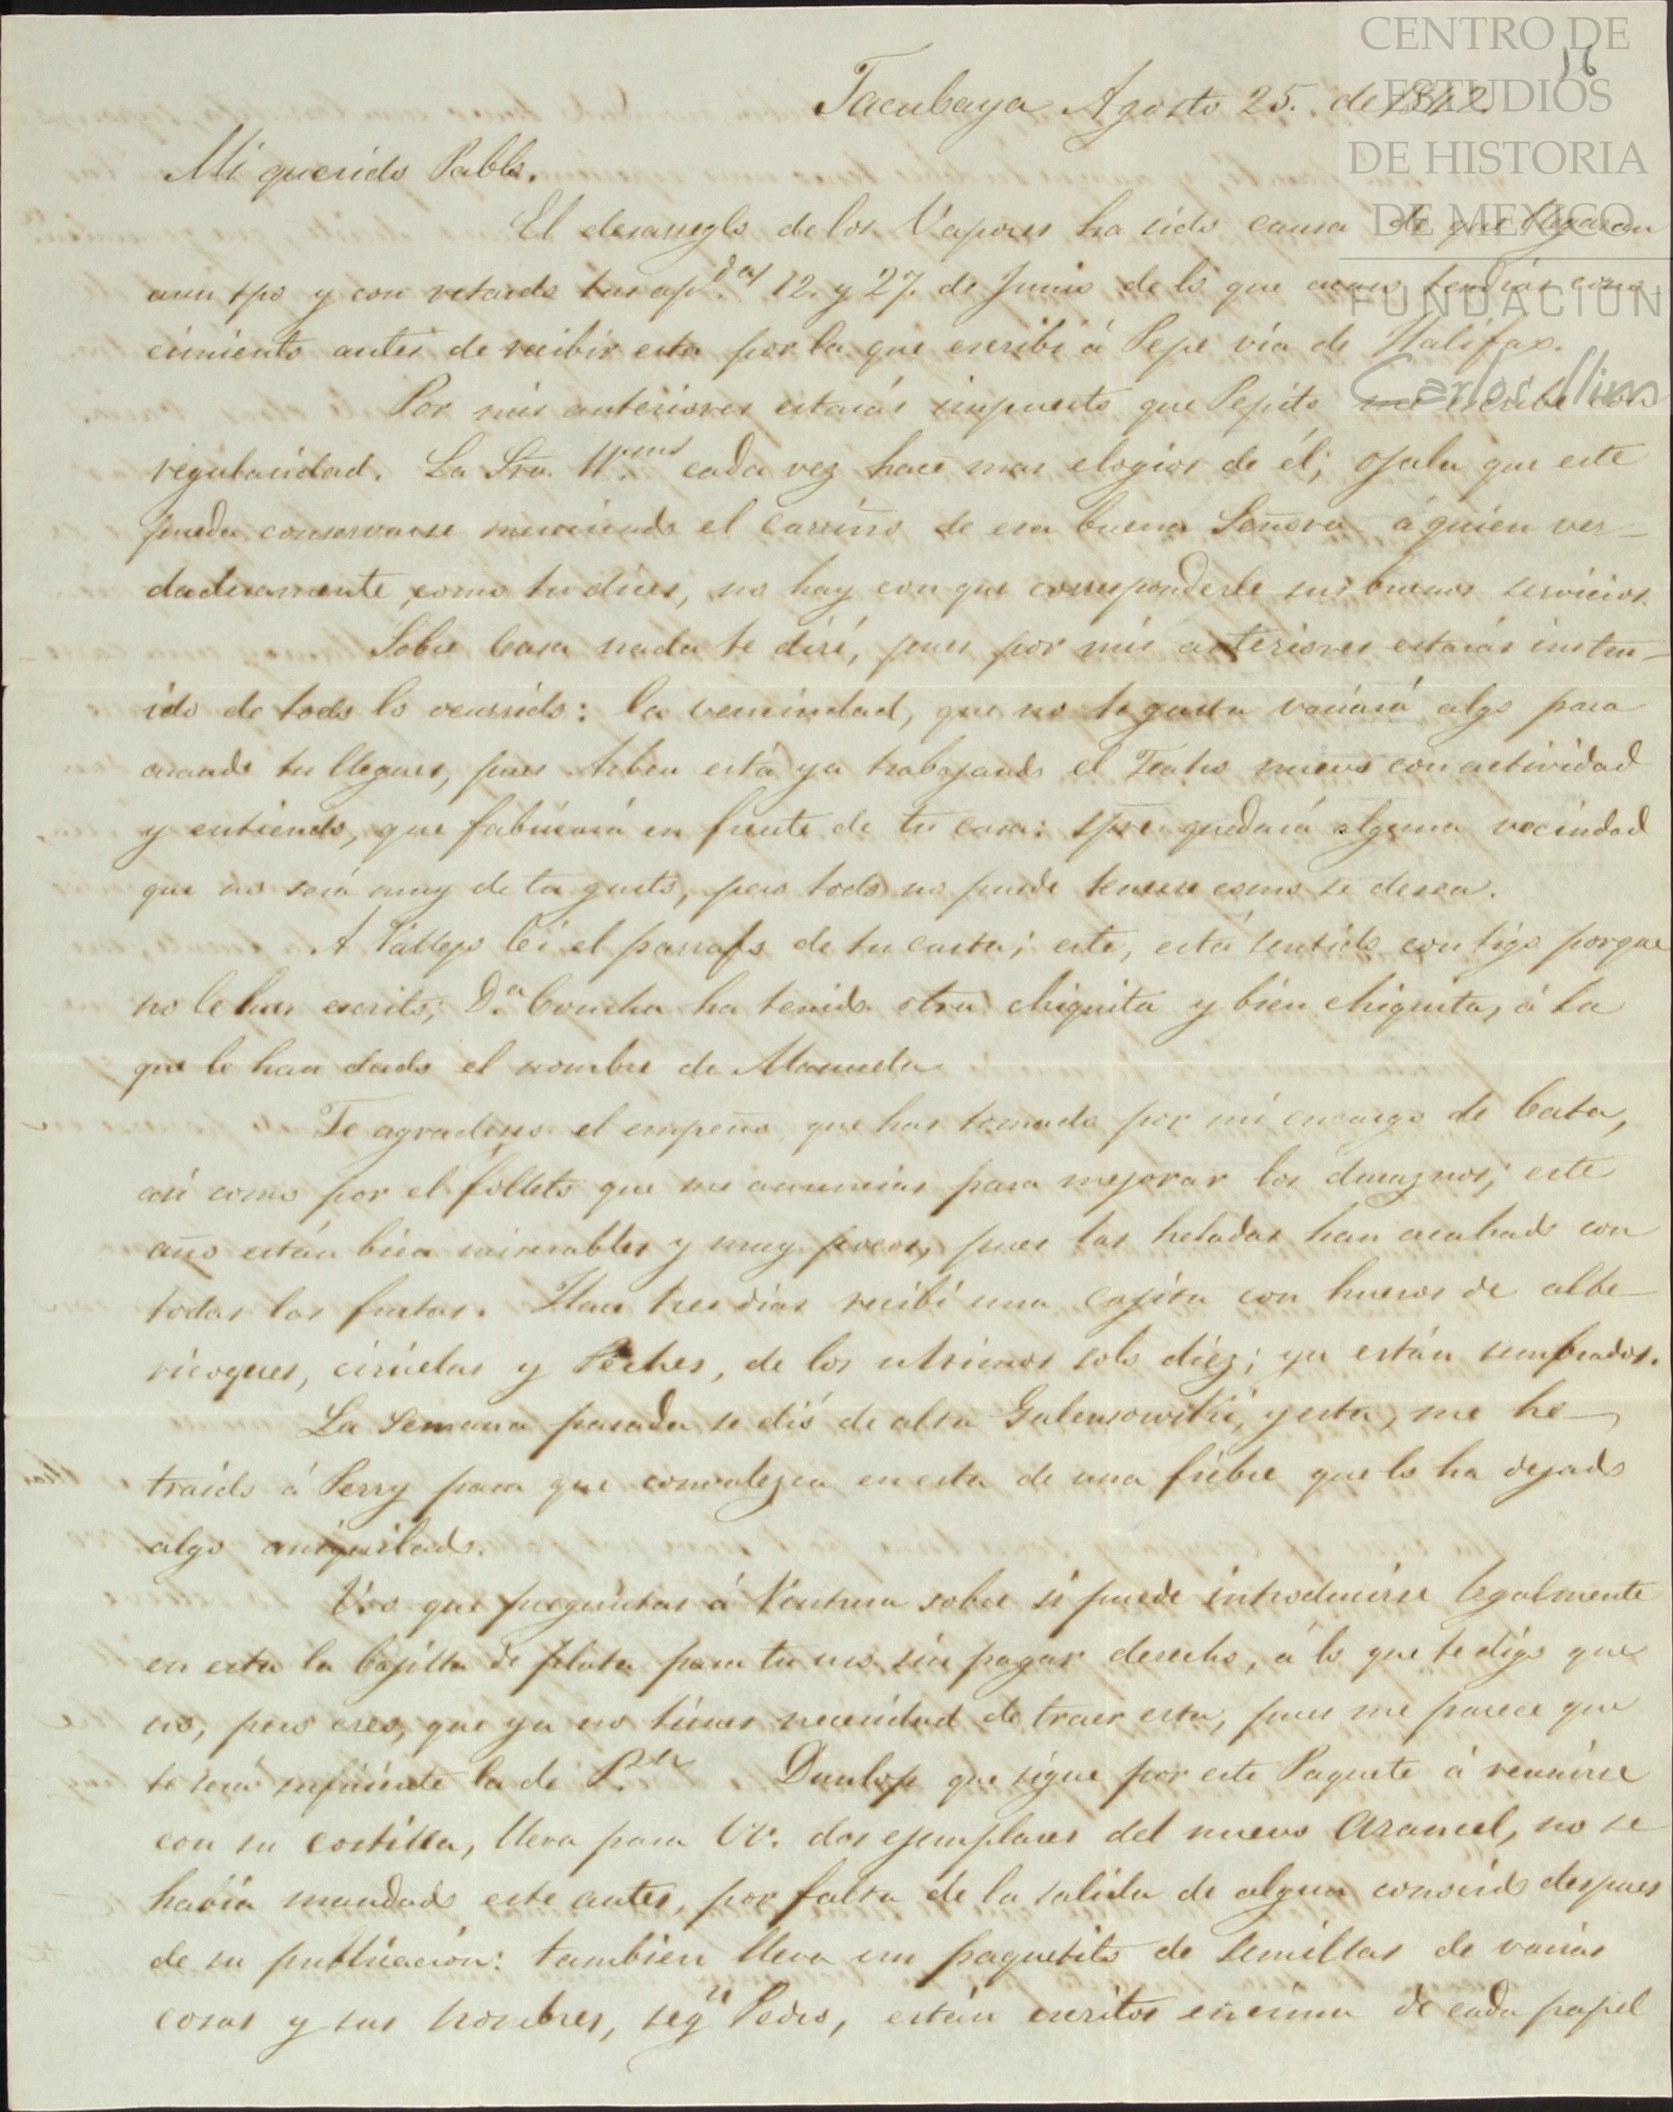 CENTRO DE
ESTUDIOS
DE HISTORIA
DE MEXICO
FUNDACION
Carlos Slim
16
Tacubaya Agosto 25. de 1842.
Mi querido Pablo.
El desarreglo de los Vapores ha sido causa de que llegaran
aun tpo y con retardo tus ap.das 12. y 27. de Junio de lo que acaso tendrás cono
cimiento antes de recibir esta por la que escribí á Pepe via de Halifax.
Por mis anteriores estarás impuesto que Pepito me escribe con
regularidad. La Sra. cada vez hace mas elogios de él; ojala que este
pueda conservarse mereciendo el carriño de esa buena Señora á quien ver-
daderamente, como tu dices, no hay con que corresponderle sus buenos servicios.
Sobre Casa nada te diré, pues por mis anteriores estarás instru-
ido de todo lo ocurrido: la vecindad, que no te gusta variará algo para
cuando tu llegues, pues Arbeu está ya trabajando el Teatro nuevo con actividad
y entiendo, que fabricará en frente de tu casa: spre quedará alguna vecindad
que no será muy de tu gusto, pero todo no puede tenerse como se desea.
A Vallejo leí el parrafo de tu carta; este, está sentido contigo porque
no le has escrito; D.a Concha ha tenido otra chiquita y bien chiquita, á la
que le han dado el nombre de Manuela
Te agradezco el empeño que has tomado por mi encargo de Cata,
asi como por el folleto que me anuncias para mejorar los duraznos; este
año están bien miserables y muy pocos, pues las heladas han acabado con
todas las frutas. Hace tres dias recibí una cajita con huesos de albe-
ricoques, ciruelas y Peches, de los ultimos solo diez; ya están sembrados.
La Semana pasada se dió de alta Galensowski, y esta, me he
traido á Perry para que convalezca en esta de una fiebre que lo ha dejado
algo aniquilado.
Veo que preguntas á Ventura sobre si puede introducirse legalmente
en esta la bajilla de plata para tu uso sin pagar derecho, á lo que te digo que
no, pero creo, que ya no tienes necesidad de traer esta, pues me parece que
te será suficiente la de Dunlop que sigue por este Paquete á reunirse
con su costilla, lleva para VV. dos ejemplares del nuevo Arancel, no se
habia mandado este antes, por falta de la salida de algun conocido despues
de su publicacion: tambien lleva un paquetito de semillas de varias
cosas y sus nombres, segn Pedro, están escritos encima de cada papel